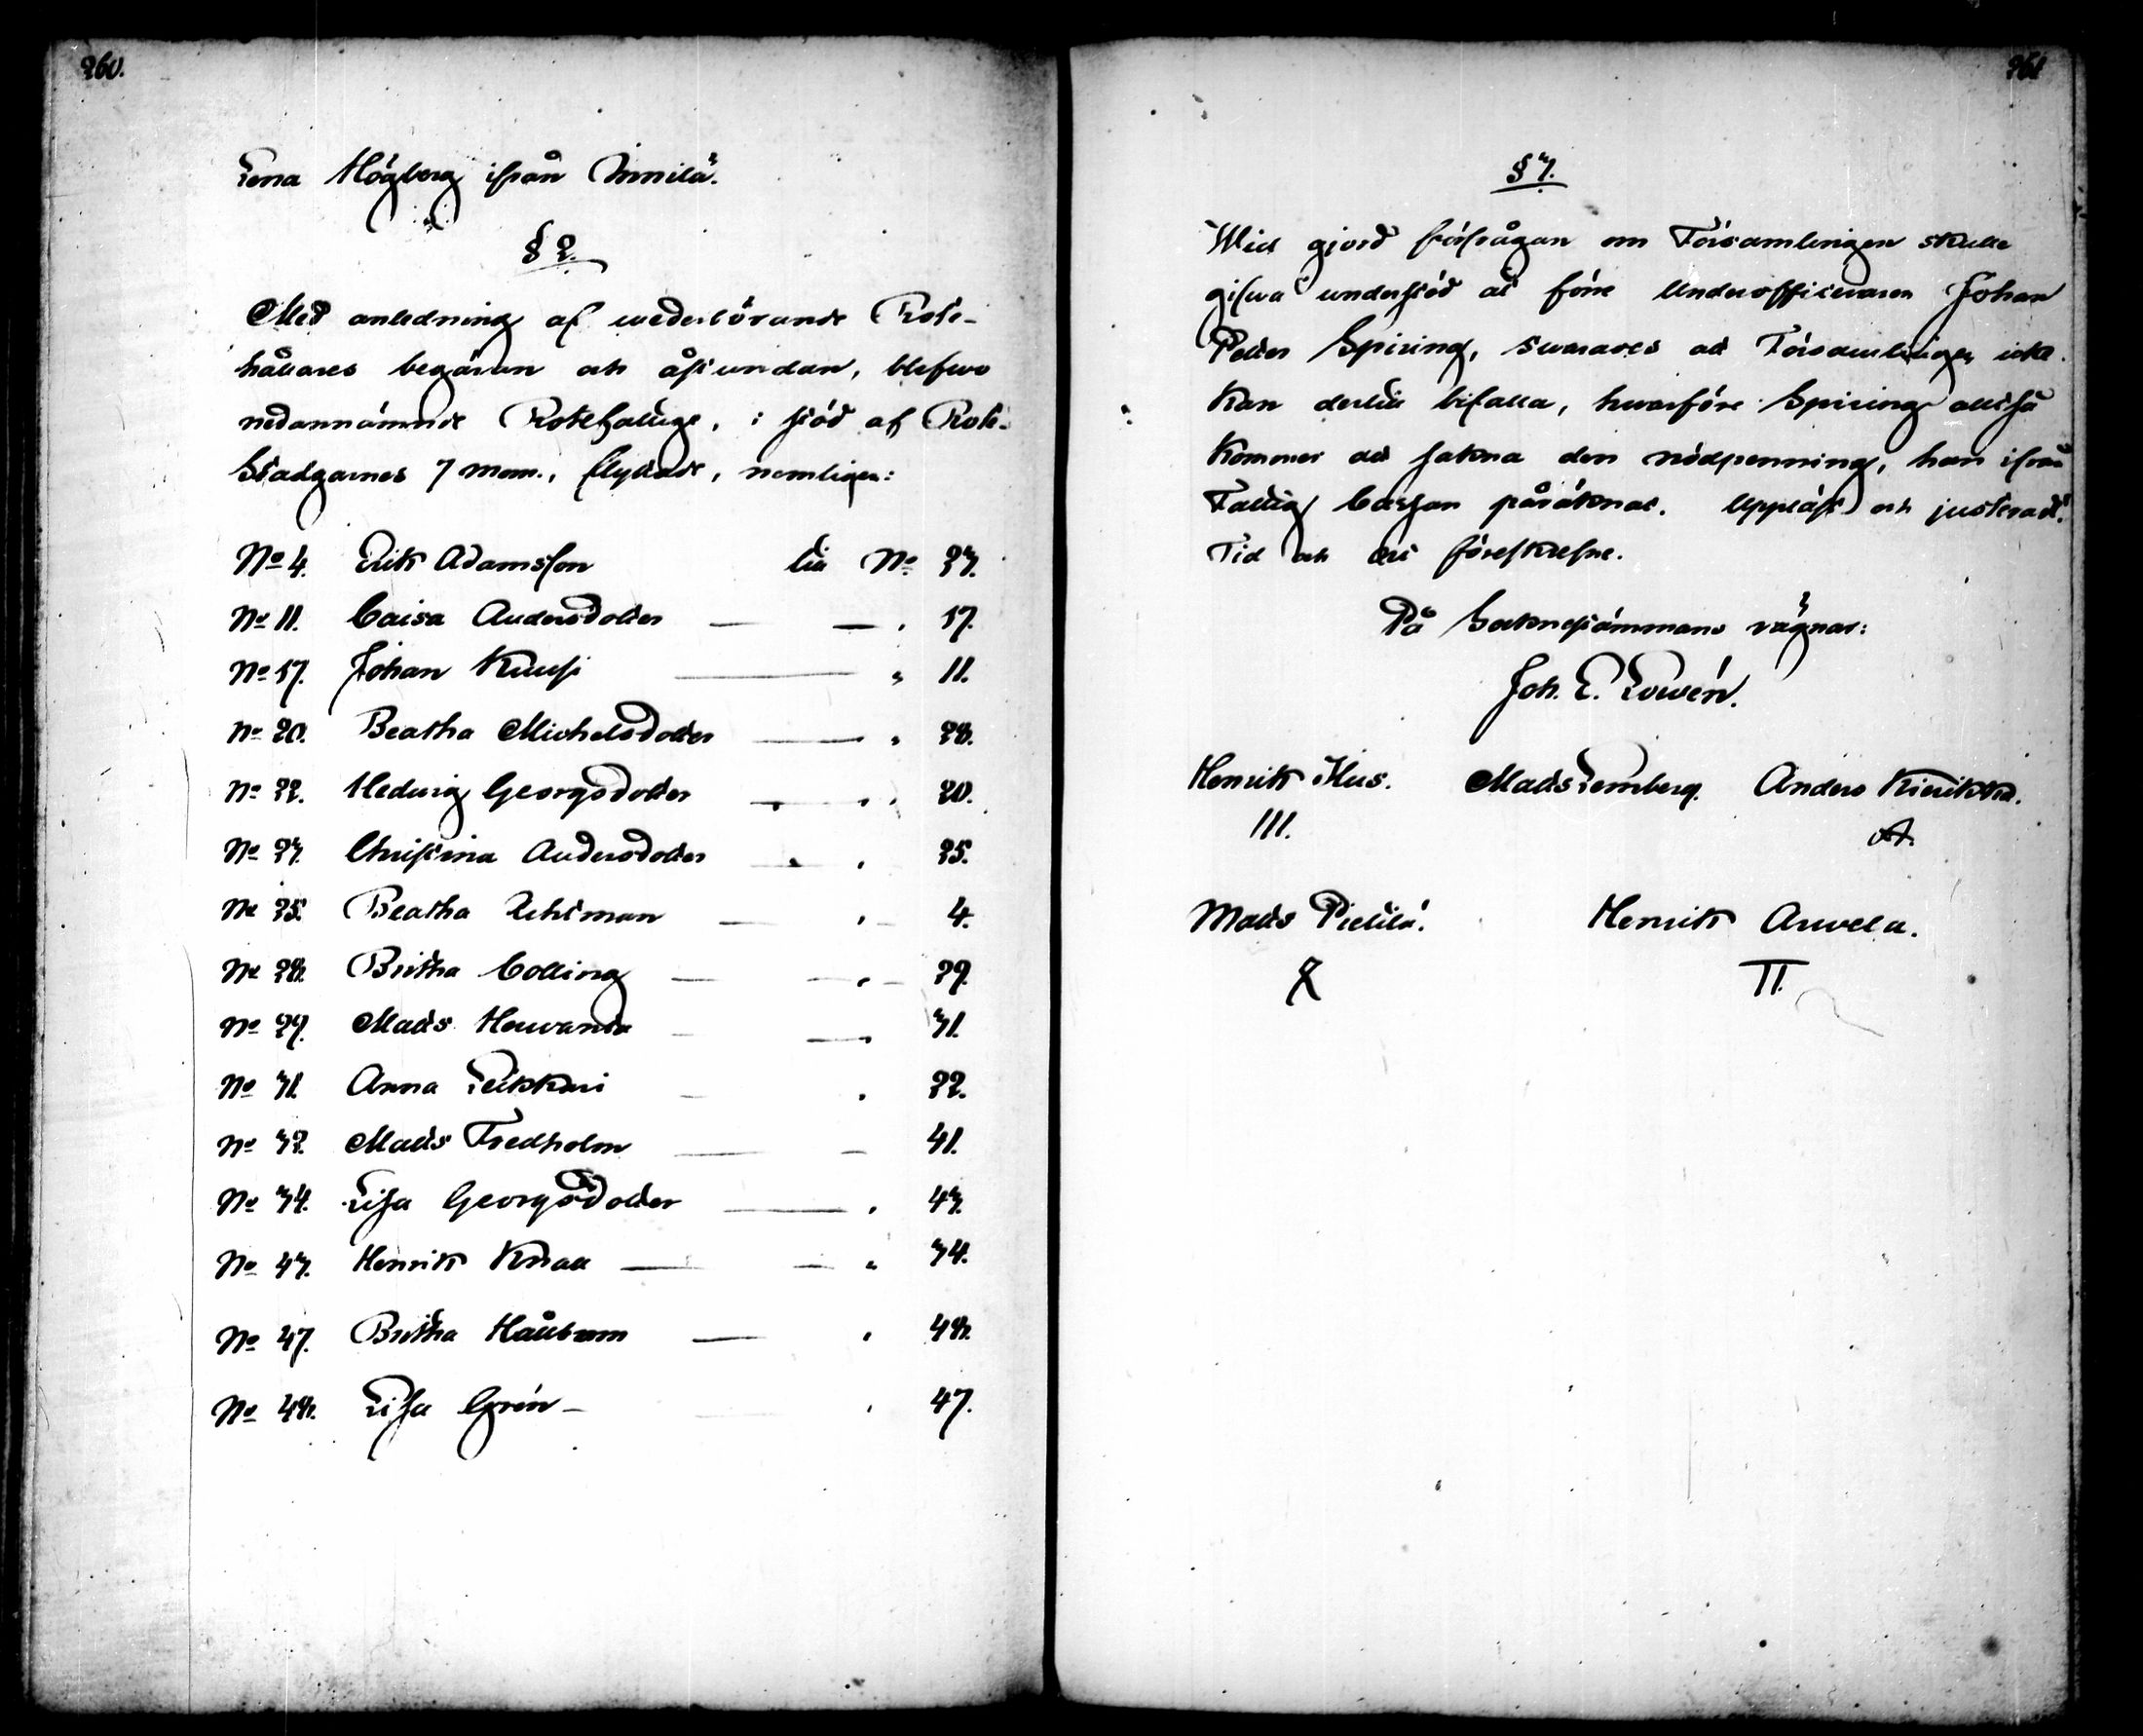 260.
Lena Högberg ifrån Innilä.
§ 2.
Med anledning af wederbörande Rote-
hållares begäran och åstundan, blefwo
nedannämnde Rotefattige, i stöd af Rote-
Stadgarnes 7 mom., flyttade, nemligen:
No 4. Erik Adamsson till No 23.
No 11. Caisa Andersdotter — — „ 17.
No 17. Johan Kuusi — „ 11.
No 20. Beatha Michelsdotter — „ 28.
No 22. Hedwig Georgsdotter — „ 20.
No 23. Christina Andersdotter — „ 25.
No 25. Beatha Uhrman — „ 4.
No 28. Britha Colling — — „ 29.
No 29. Matts Herwanta — — „ 31.
No 31. Anna Leikkari — „ 22.
No 32. Matts Fredholm — — 41.
No 34. Lisa Georgsdotter — „ 43.
No 43. Henrik Knaa — — „ 34.
No 47. Britha Hallbom — „ 48.
No 48. Lisa Grön — „ 47.
261
§ 3.
Wid gjord förfrågan om Församlingen skulle
gifwa understöd åt förre Underofficeraren Johan
Petter Spiring, swarades att Församlingen icke
kan dertill bifalla, hwarföre Spiring alltså
kommer att sakna den nödpenning, han ifrån
Fattig Cassan påräknat. Uppläst och justeradt.
Tid och Ort föreskrefne.
På Socknestämmans vägnar:
Joh. E. Lowén.
Henrik Hus. Matts Lemberg. Anders Kierikka.
III. A.
Matts Pietilä. Henrik Arwela.
X II.